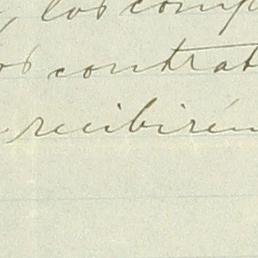 los comp
os contrat
recibirén